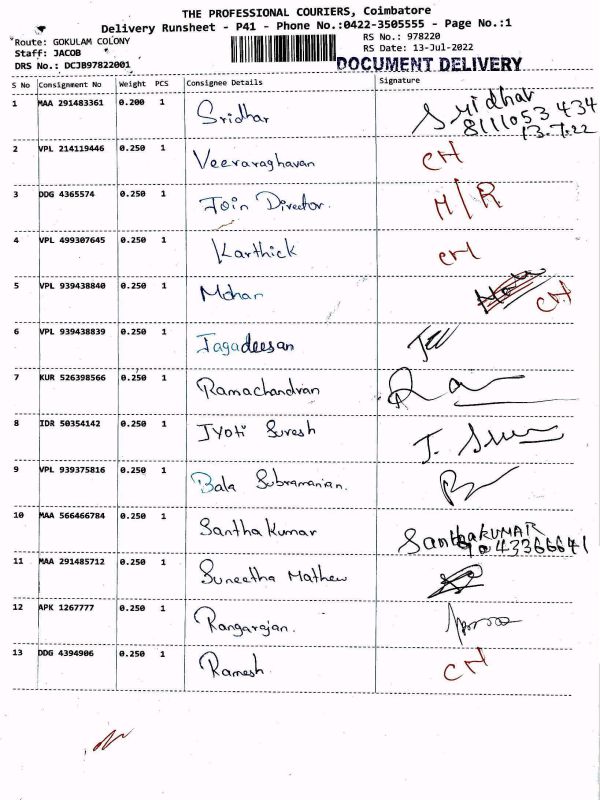 THE PROFESSIONAL COURIERS, Coimbatore
Delivery Runsheet - P41 - Phone No.:0422-3505555 - Page No.:1
Route: GOKULAM COLONY RS No.: 978220
Staff: JACOB RS Date: 13-Jul-2022
DRS No.: DCJB97822001 DOCUMENT DELIVERY
S No Consignment No Weight PCS Consignee Details Signature
1 MAA 291483361 0.200 1 Sridhar Sridhar
8111053434
13.7.22
2 VPL 214119446 0.250 1 Veeraraghavan CH
3 DDG 4365574 0.250 1 Join Director. M/R
4 VPL 499307645 0.250 1 Karthick CH
5 VPL 939438840 0.250 1 Mohan CH
6 VPL 939438839 0.250 1 Jagadeesan
7 KUR 526398566 0.250 1 Ramachandran Ra
8 IDR 50354142 0.250 1 Jyoti Suresh J.
9 VPL 939375816 0.250 1 Bala Subramanian.
10 MAA 566466784 0.250 1 Santha Kumar SanthaKUMAR
9043366641
11 MAA 291485712 0.250 1 Suneetha Mathew
12 APK 1267777 0.250 1 Rangarajan.
13 DDG 4394906 0.250 1 Ramesh CH